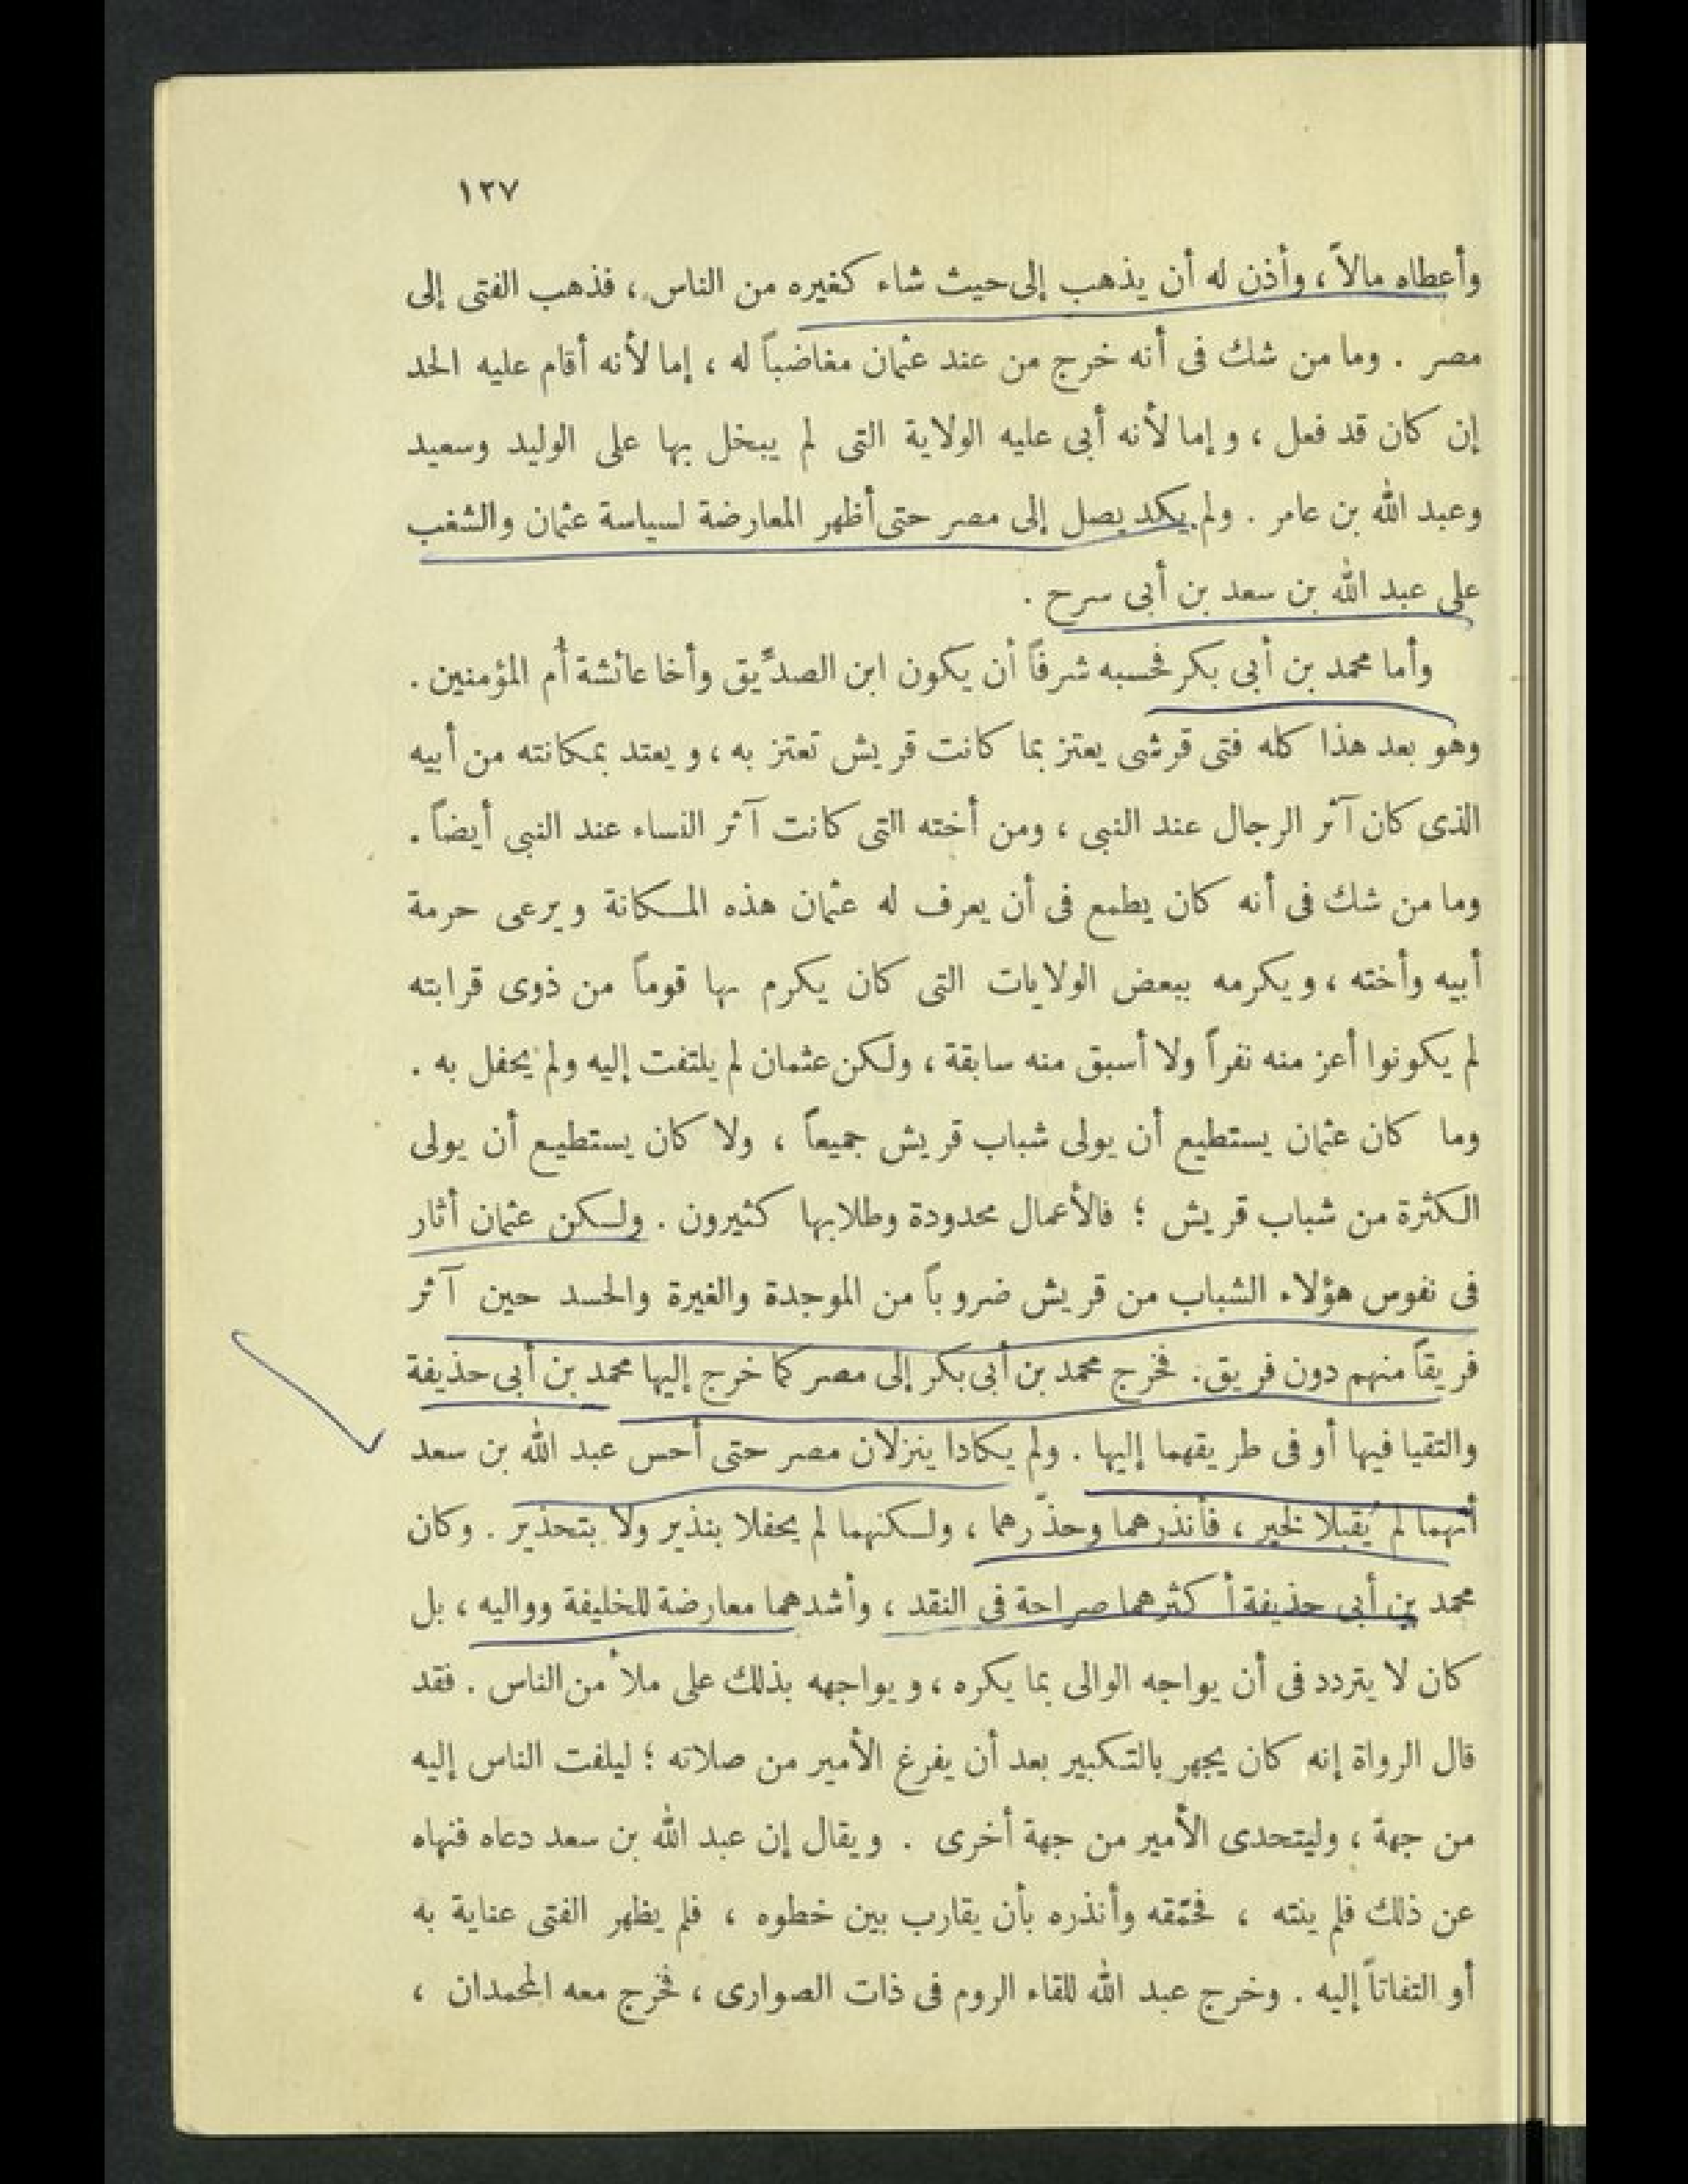 ١٢٧
وأعطاه مالاً ، وأذن له أن يذهب إلى حيث شاء كغيره من الناس ، فذهب الفتى إلى
مصر . وما من شك فى أنه خرج من عند عثمان مغاضباً له ، إما لأنه أقام عليه الحد
إن كان قد فعل ، وإما لأنه أبى عليه الولاية التى لم يبخل بها على الوليد وسعيد
وعبد الله بن عامر . ولم يكد يصل إلى مصر حتى أظهر المعارضة لسياسة عثمان والشغب
على عبد الله بن سعد بن أبى سرح .
وأما محمد بن أبى بكر فحسبه شرفاً أن يكون ابن الصدِّيق وأخا عائشة أُم المؤمنين .
وهو بعد هذا كله فتى قرشى يعتز بما كانت قريش تعتز به ، ويعتد بمكانته من أبيه
الذى كان آثر الرجال عند النبى ، ومن أخته التى كانت آثر النساء عند النبى أيضاً .
وما من شك فى أنه كان يطمع فى أن يعرف له عثمان هذه المكانة ويرعى حرمة
أبيه وأخته ، ويكرمه ببعض الولايات التى كان يكرم بها قوماً من ذوى قرابته
لم يكونوا أعز منه نفراً ولا أسبق منه سابقة ، ولكن عثمان لم يلتفت إليه ولم يحفل به .
وما كان عثمان يستطيع أن يولى شباب قريش جميعاً ، ولا كان يستطيع أن يولى
الكثرة من شباب قريش ؛ فالأعمال محدودة وطلابها كثيرون . ولكن عثمان أثار
فى نفوس هؤلاء الشباب من قريش ضروباً من الموجدة والغيرة والحسد حين آثر
فريقاً منهم دون فريق . فخرج محمد بن أبى بكر إلى مصر كما خرج إليها محمد بن أبى حذيفة
والتقيا فيها أو فى طريقهما إليها . ولم يكادا ينزلان مصر حتى أحس عبد الله بن سعد
أنهما لم يُقبلا لخير ، فأنذرهما وحذّرهما ، ولكنهما لم يحفلا بنذير ولا بتحذير . وكان
محمد بن أبى حذيفة أكثرهما صراحة فى النقد ، وأشدهما معارضة للخليفة وواليه ، بل
كان لا يتردد فى أن يواجه الوالى بما يكره ، ويواجهه بذلك على ملأ من الناس . فقد
قال الرواة إنه كان يجهر بالتكبير بعد أن يفرغ الأمير من صلاته ؛ ليلفت الناس إليه
من جهة ، وليتحدى الأمير من جهة أخرى . ويقال إن عبد الله بن سعد دعاه فنهاه
عن ذلك فلم ينته ، فحمّقه وأنذره بأن يقارب بين خطوه ، فلم يظهر الفتى عناية به
أو التفاتاً إليه . وخرج عبد الله للقاء الروم فى ذات الصوارى ، فخرج معه المحمدان ،